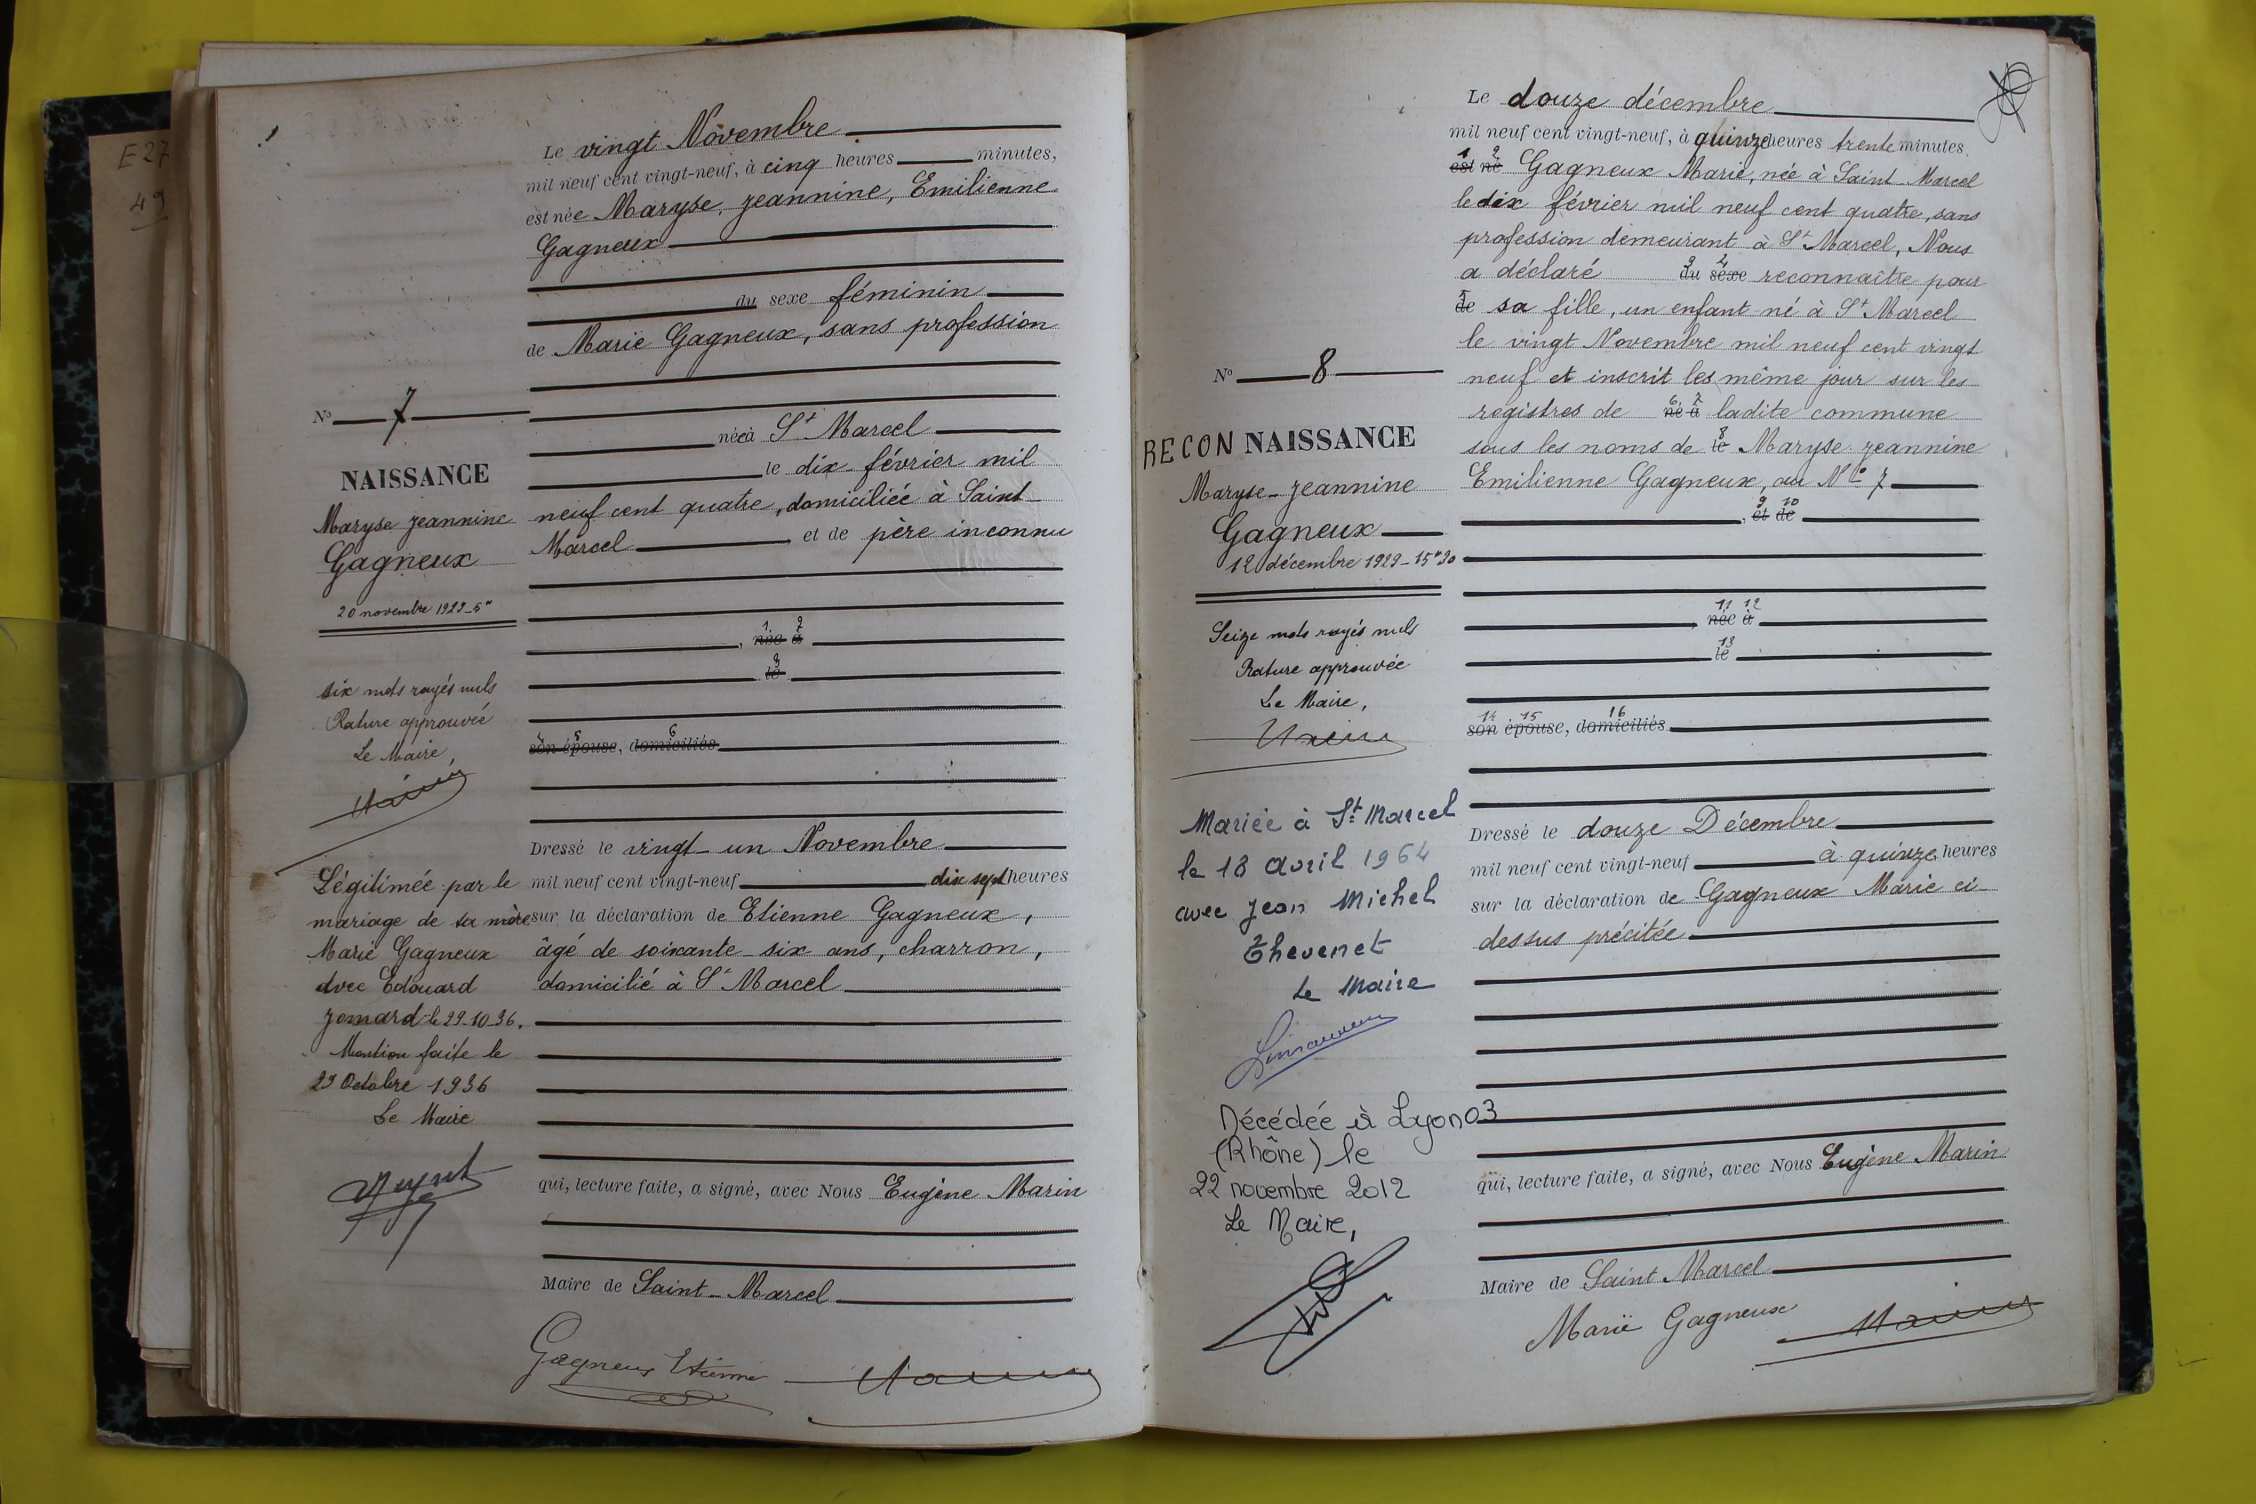 E 27
49
Le vingt Novembre
mil neuf cent vingt-neuf, à cinq heures minutes,
est née Maryse, Jeannine, Emilienne
Gagneux
du sexe féminin
de Marie Gagneux, sans profession
née à St Marcel
le dix février mil
neuf cent quatre, domiciliée à Saint-
Marcel et de père inconnu
1 2
, née à
3
le
4 5 6
son épouse, domiciliés
Dressé le vingt-un Novembre
mil neuf cent vingt-neuf dix sept heures
sur la déclaration de Etienne Gagneux,
âgé de soixante-six ans, charron,
domicilié à St Marcel
qui, lecture faite, a signé, avec Nous Eugène Marin
Maire de Saint-Marcel
Gagneux Etienne
Marin
No 7
NAISSANCE
Maryse Jeannine
Gagneux
20 novembre 1929-5h
six mots rayés nuls
Rature approuvée
Le Maire,
Marin
Légitimée par le
mariage de sa mère
Marie Gagneux
avec Edouard
Jomard le 29-10-36.
Mention faite le
29 Octobre 1936
Le Maire
Le douze décembre
mil neuf cent vingt-neuf, à quinze heures trente minutes.
1 2
est né Gagneux Marie, née à Saint-Marcel
le dix février mil neuf cent quatre, sans
profession demeurant à St Marcel, Nous
3 4
a déclaré du sexe reconnaître pour
5
de sa fille, un enfant né à St Marcel
le vingt Novembre mil neuf cent vingt
neuf et inscrit les même jour sur les
6 7
registres de né à ladite commune
8
sous les noms de le Maryse Jeannine
Emilienne Gagneux, au No 7
9 10
, et de
11 12
, née à
13
le
14 15 16
son épouse, domiciliés
Dressé le douze Décembre
mil neuf cent vingt-neuf à quinze heures
sur la déclaration de Gagneux Marie ci-
dessus précitée
qui, lecture faite, a signé, avec Nous Eugène Marin
Maire de Saint Marcel
Marie Gagneux
Marin
No 8
RECONNAISSANCE
Maryse-Jeannine
Gagneux
12 décembre 1929-15h30
Seize mots rayés nuls
Rature approuvée
Le Maire,
Marin
Mariée à St Marcel
le 18 avril 1964
avec Jean Michel
Thevenet
Le Maire
Décédée à Lyon 03
(Rhône) le
22 novembre 2012
Le Maire,